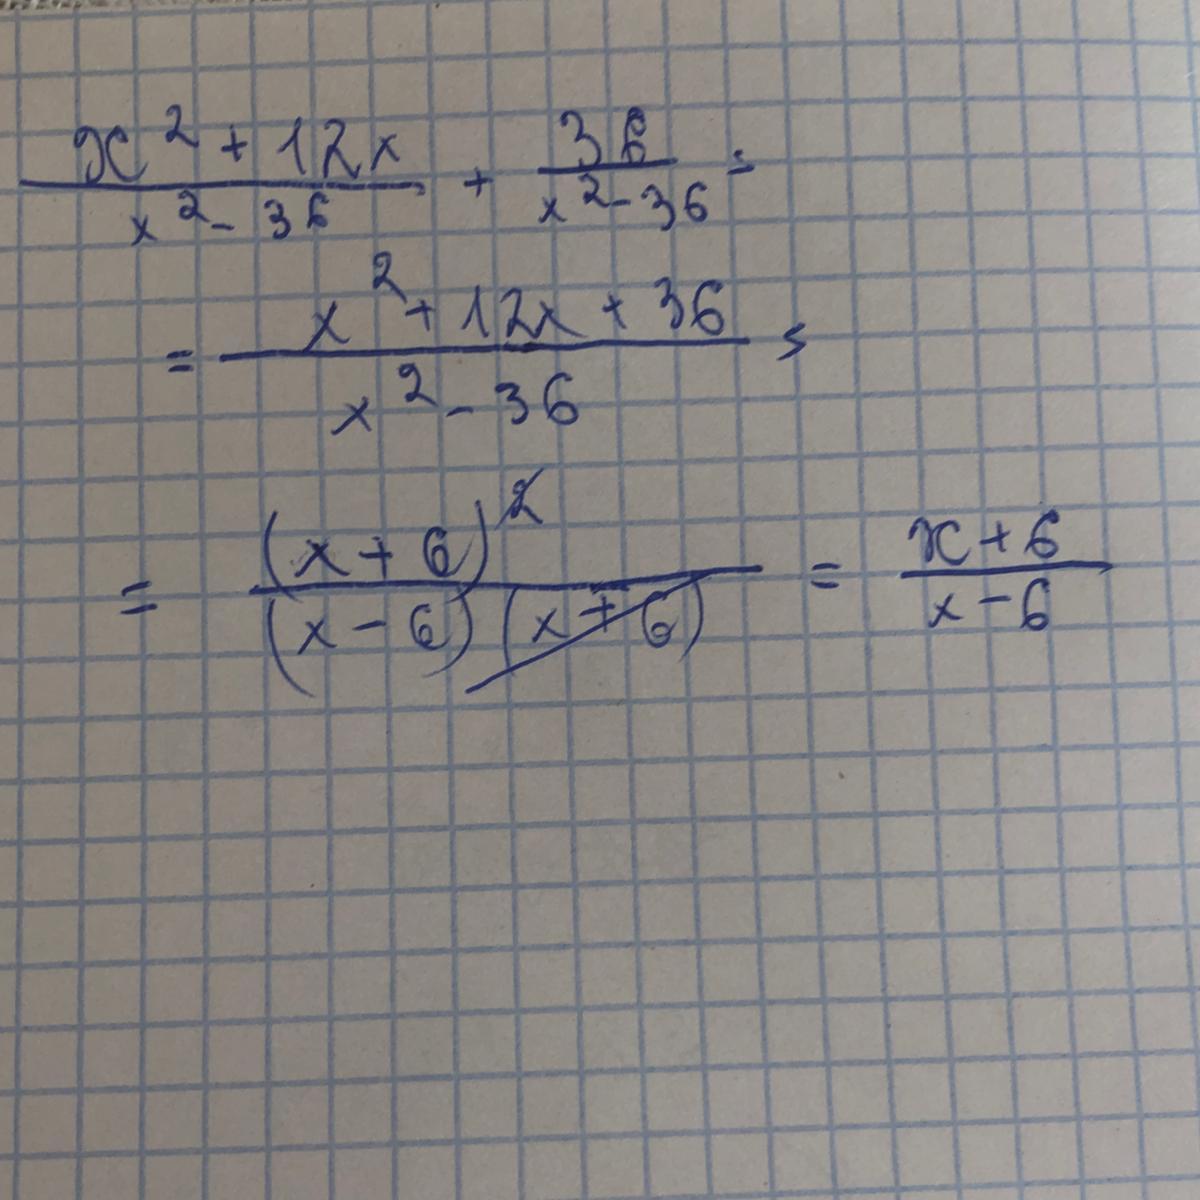 (x² + 12x)/(x² - 36) + 36/(x² - 36) =
= (x² + 12x + 36)/(x² - 36) =
= (x + 6)²/((x - 6)(x + 6)) = (x + 6)/(x - 6)